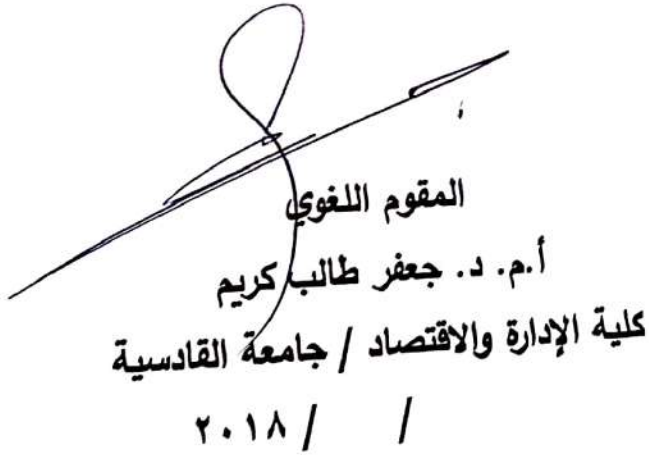 المقوم اللغوي
أ.م. د. جعفر طالب كريم
كلية الإدارة والاقتصاد / جامعة القادسية
/ / ٢٠١٨